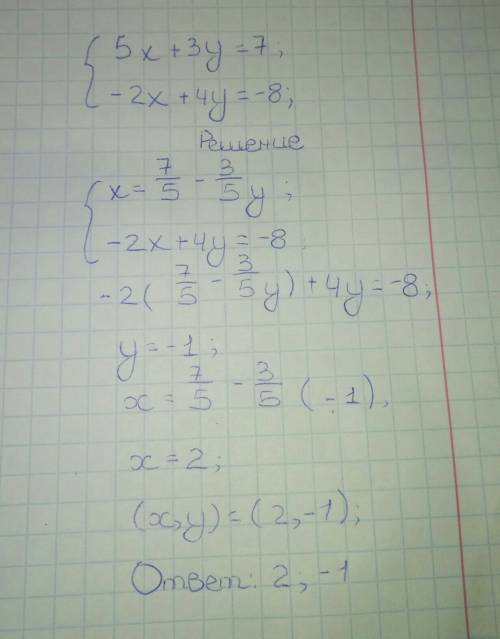 5x + 3y = 7;
-2x + 4y = -8;
Решение
x = 7/5 - 3/5 y;
-2x + 4y = -8
-2(7/5 - 3/5 y) + 4y = -8;
y = -1;
x = 7/5 - 3/5 (-1),
x = 2;
(x, y) = (2, -1);
Ответ: 2; -1